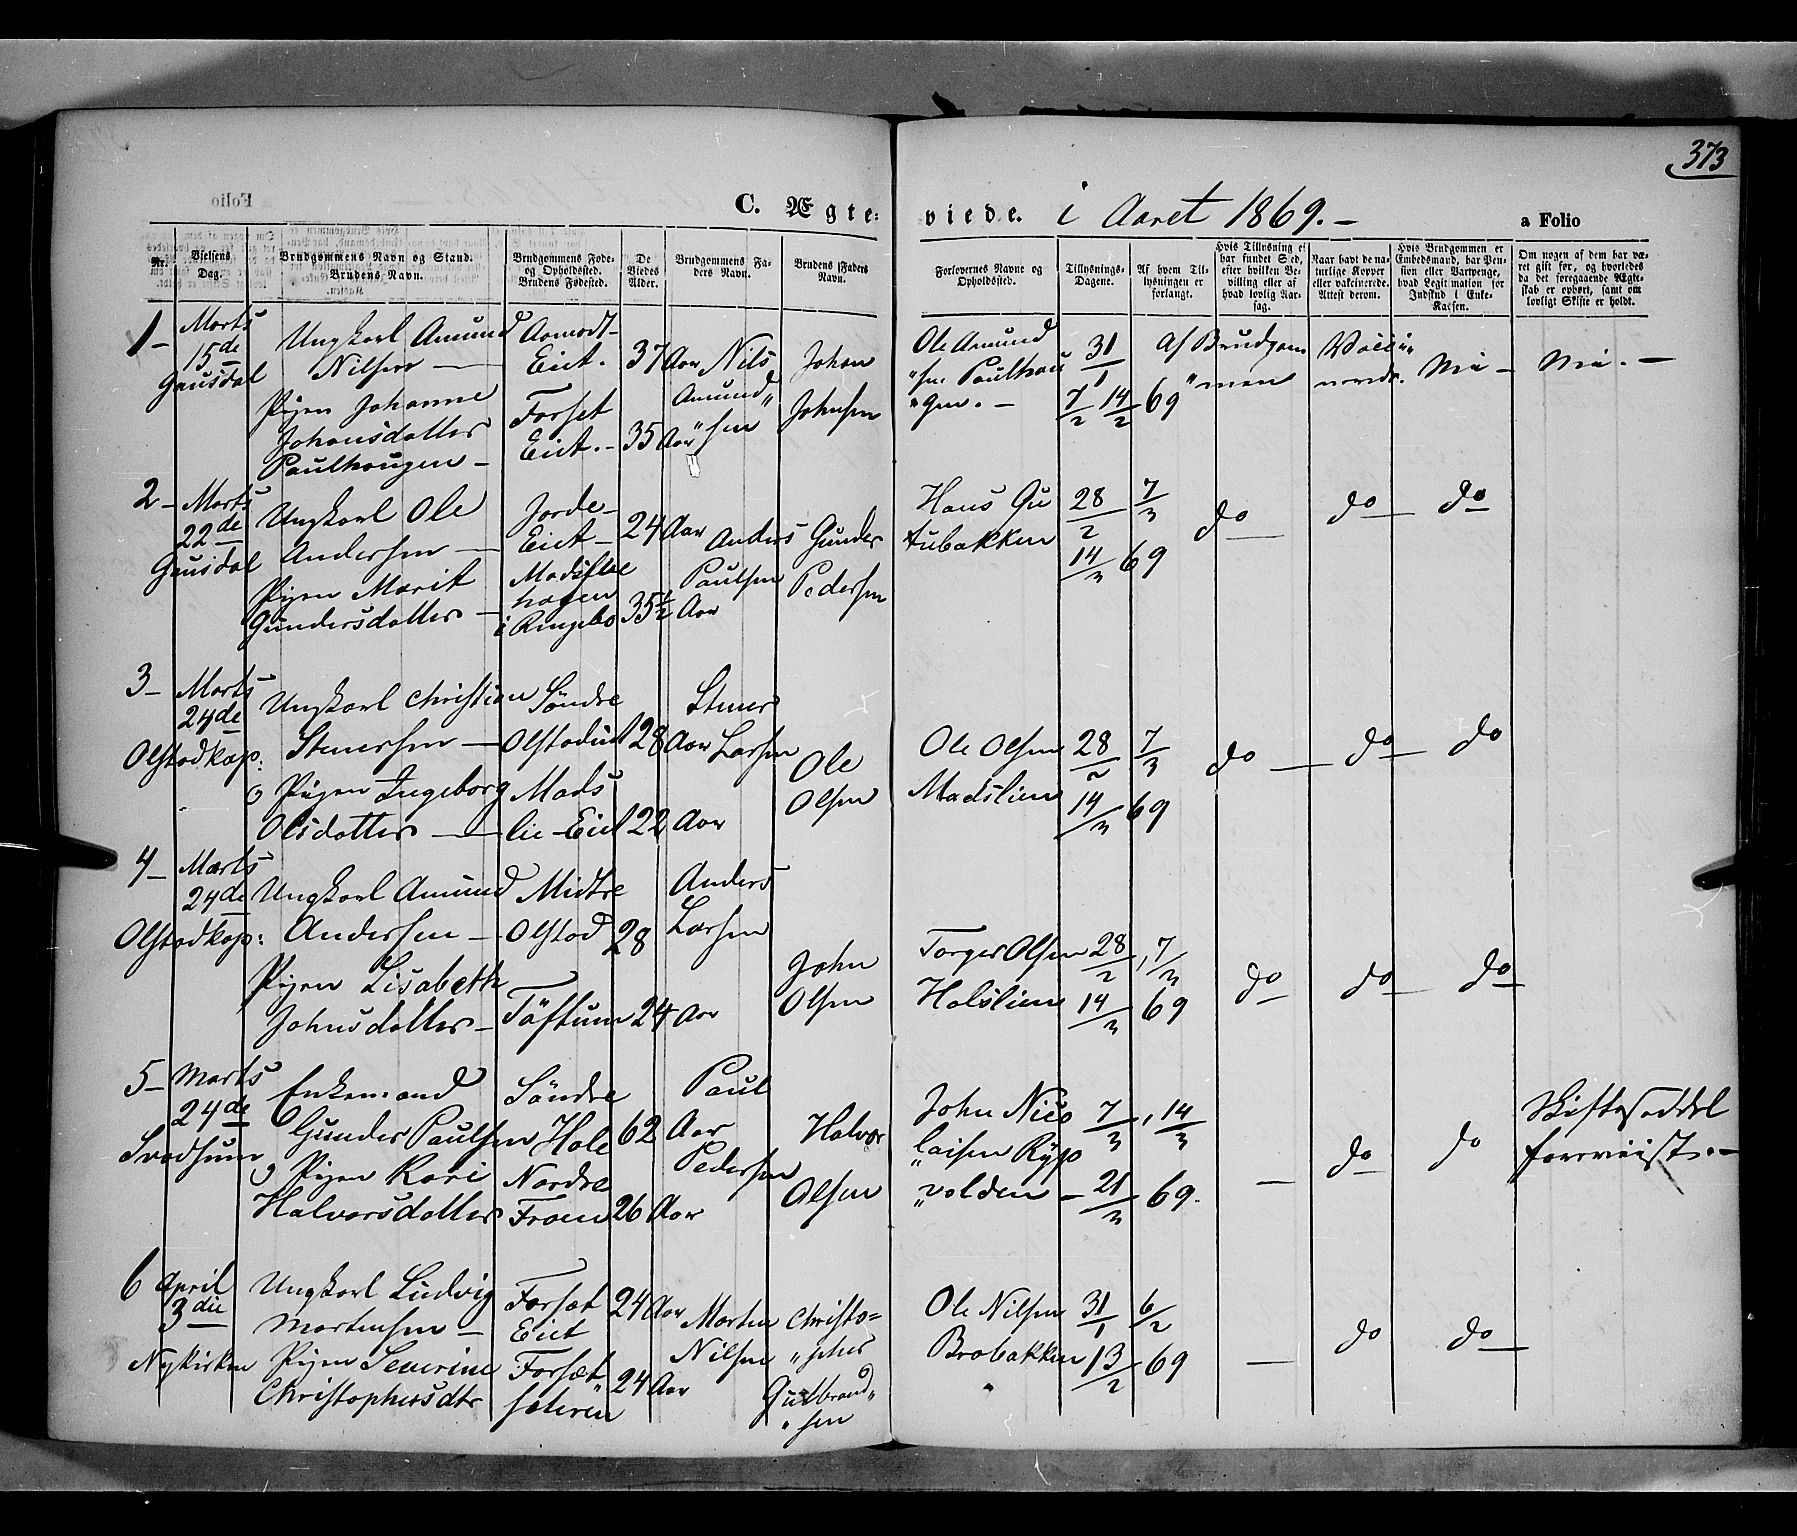 373
Folio
C. Ægte-
viede. i Aaret 1869. —
a Folio
Nr.
Vielsens Dag.
Brudgommens Navn og Stand. Brudens Navn.
Brudgommens Føde- og Opholdssted. Brudens Fødested.
De Viedes Alder.
Brudgommens Faders Navn.
Brudens Faders Navn.
Forlovernes Navne og Opholdssted.
Tillysnings-Dagene.
Af hvem Tillysningen er forlangt.
Hvis Tillysning ei har fundet Sted, efter hvilken Bevilling eller af hvad lovlig Aarsag.
Naar havt de naturlige Kopper eller vakcinerede. Attest derom.
Hvis Brudgommen er Embedsmand, har Pension eller Vartpenge, hvad Legitimation for Indskud i Enke-Kassen.
Om nogen af dem har været gift før, og hvorledes da det foregaaende Ægteskab er ophørt, samt om lovligt Skifte er holdt.
1 — Marts 15de Gausdal
Ungkarl Amund Nilsen —
Aamodt Eiet. 37 Aar
Nils Amund„ „sen
Johan Johnsen
Pigen Johanne Johansdatter Paulhaugen —
Forset Eiet. — 35 Aar
Ole Amund „sen Paulhau „gen. —
31/1 7/2 14/2 69
Af Brudgom „men
Nei —
Nei. —
2 — Marts 22de Gausdal
Ungkarl Ole Andersen —
Jorde— Eiet — 24 Aar
Anders Paulsen
Gunder Pedersen
Pigen Marit Gundersdatter —
hagen i Ringebo 35 1/2 Aar
Hans Gu tubakken
28/2 7/3 14/3 69
do — do — do
3 — Marts 24de Olstadkap:
Ungkarl Christian Stenersen —
Söndre Olstadeiet 28 Aar
Stener Larsen
Ole Olsen
o Pigen Ingeborg Olsdatter —
Mads lie — Eiet 22 Aar
Ole Olsen Madslien
28/2 7/3 14/3 69
do — do — do
4 — Marts 24de Olstadkap:
Ungkarl Amund Andersen —
Midtre Olstad 28
Anders Larsen
John Olsen
Pigen Lisabeth Johnsdatter —
Töftum 24 Aar
Torger Olsen Holslien
28/2, 7/3 14/3 69
do do — do
5 — Marts 24de Svadsum
Enkemand Gunder Paulsen
Söndre Hole 62 Aar
Paul Pedersen
Halvor Olsen
o Pigen Kari Halvorsdatter
Nordre 26 Aar
John Nico „laisen Ryp „volden —
7/3, 14/3 21/3 69.
— do do
Skifteseddel foreviist. —
6 April 3die Nykirken
Ungkarl Ludvig Mortensen —
Forsæt Eiet 24 Aar
Morten Nilsen
Christo= „pher Gulbrand„ „sen
Pigen Severine Christophersdtr
Forsæt „ sæteren 24 Aar
Ole Nilsen Brobakken
31/1 6/2 13/2 69
— do do